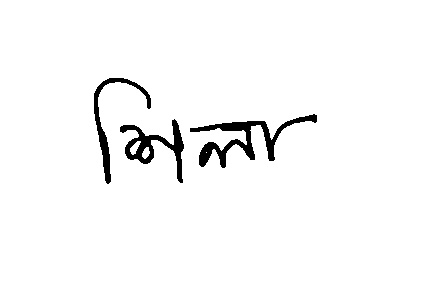 শিলা